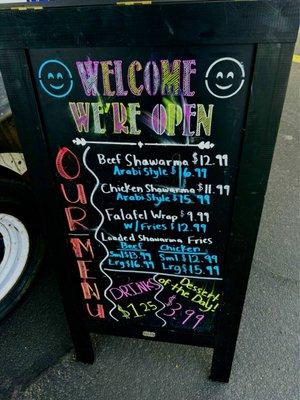 WELCOME
WE'RE OPEN
OUR MENU
Beef Shawarma $12.99
Arabi Style $16.99
Chicken Shawarma $11.99
Arabi Style $15.99
Falafel Wrap $9.99
w/Fries $12.99
Loaded Shawarma Fries
Beef Chicken
Sml $13.99 Sml $12.99
Lrg $16.99 Lrg $15.99
DRINKS
$1.25
Dessert
of the Day!
$3.99